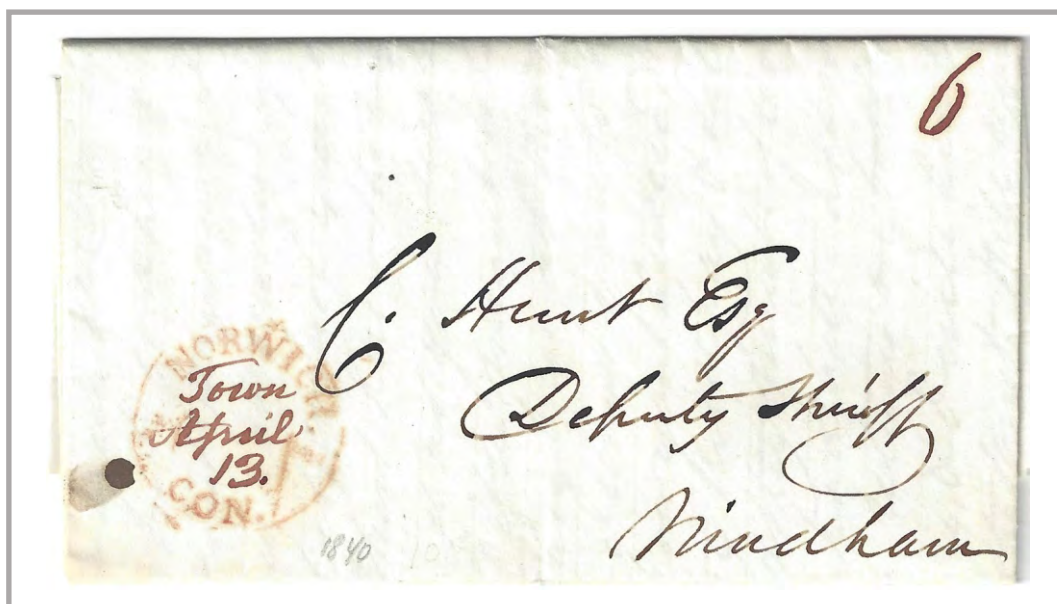 6
C. Hunt Esq
Deputy Sheriff
Windham
NORWICH.
Town
April
13.
CON.
1840